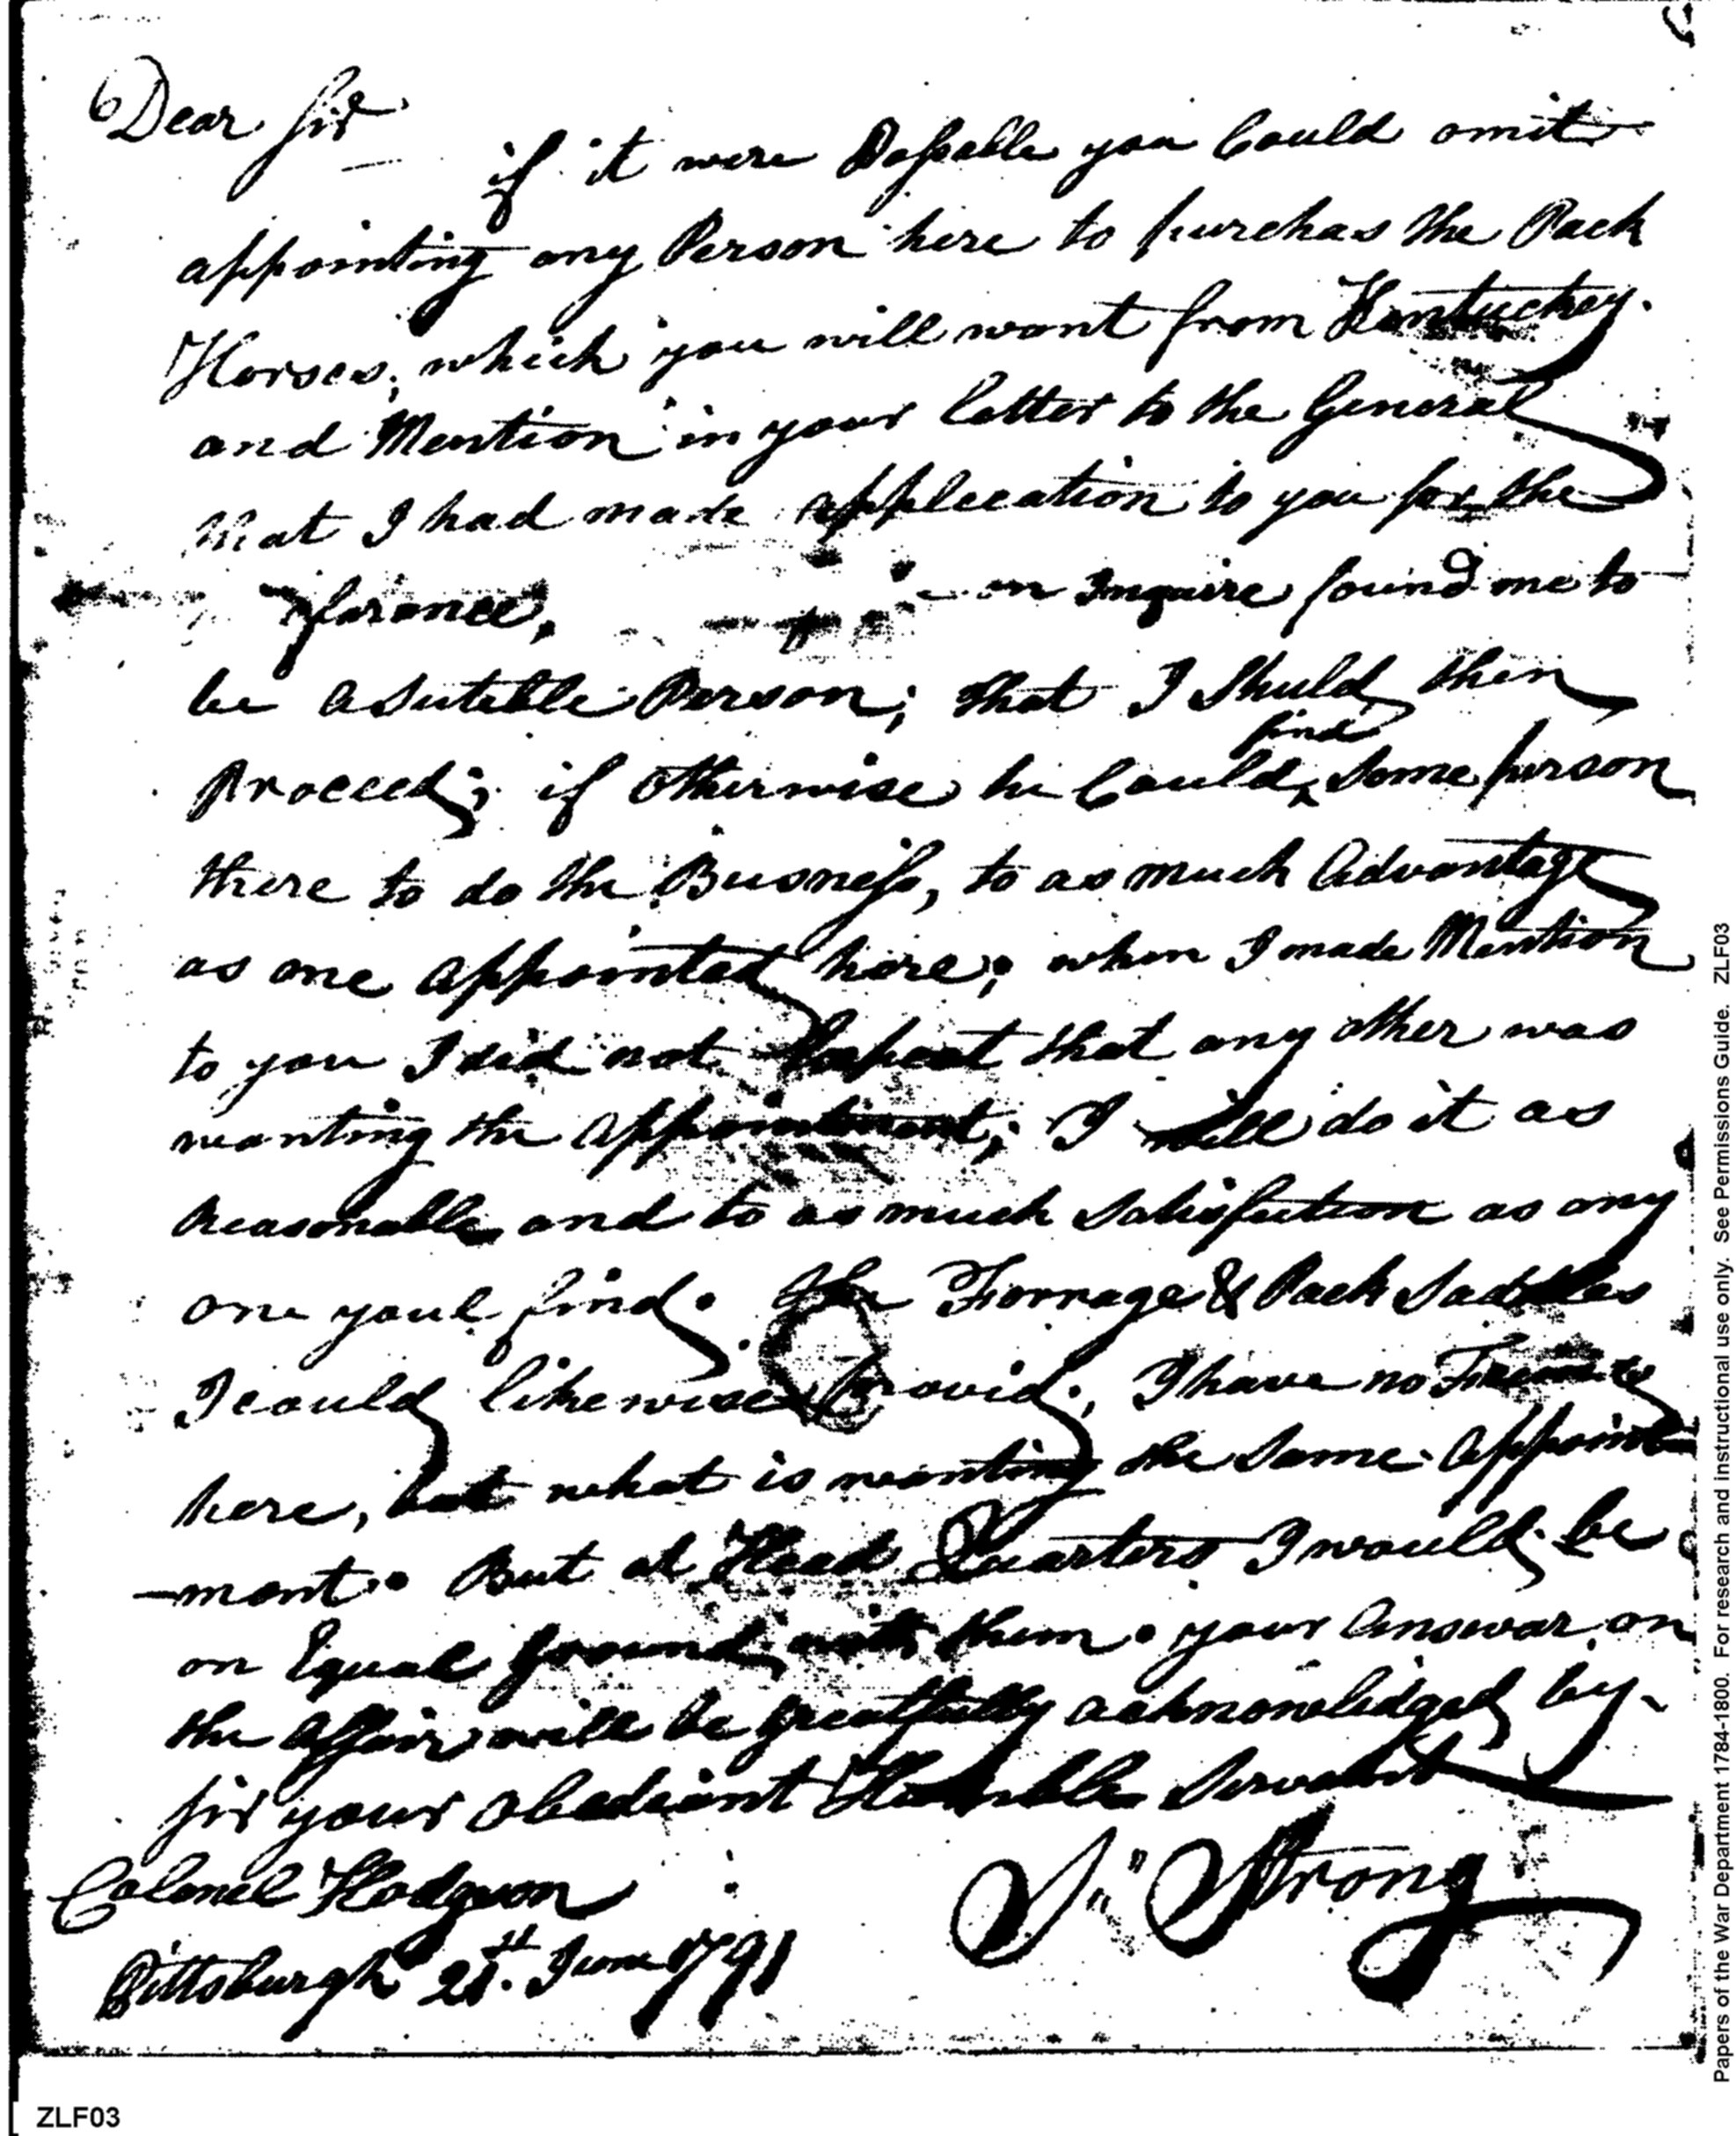 Dear Sir
if it were Possable you Could omit
appointing any Person here to purchas the Pack
Horses, which you will want from Kentuckey.
and Mention in your Letter to the General
that I had made application to you for the
on Inquire found me to
be a Suteble Person; that I Shuld then
Proceed; if otherwise he Could find some person
there to do the Busness, to as much Advantage
as one appointed here; when I made Mention
to you I did not that any other was
wanting the appointment; I will do it as
Reasonable and to as much Satisfaction as any
one youl find. the Forrage & Pack Saddles
I could likewise Provid; I have no
here, but what is wanting the Same Appoint
-ment. But at Head Quarters I would be
on Equal ground with them. your Answar on
the Affair will be greatfully acknowlidged by
Sir your obediant Humble Servant
Strong
Colonel Hodgson
Pittsburgh 21st. June 1791
ZLF03
Papers of the War Department 1784-1800. For research and Instructional use only. See Permissions Guide. ZLF03